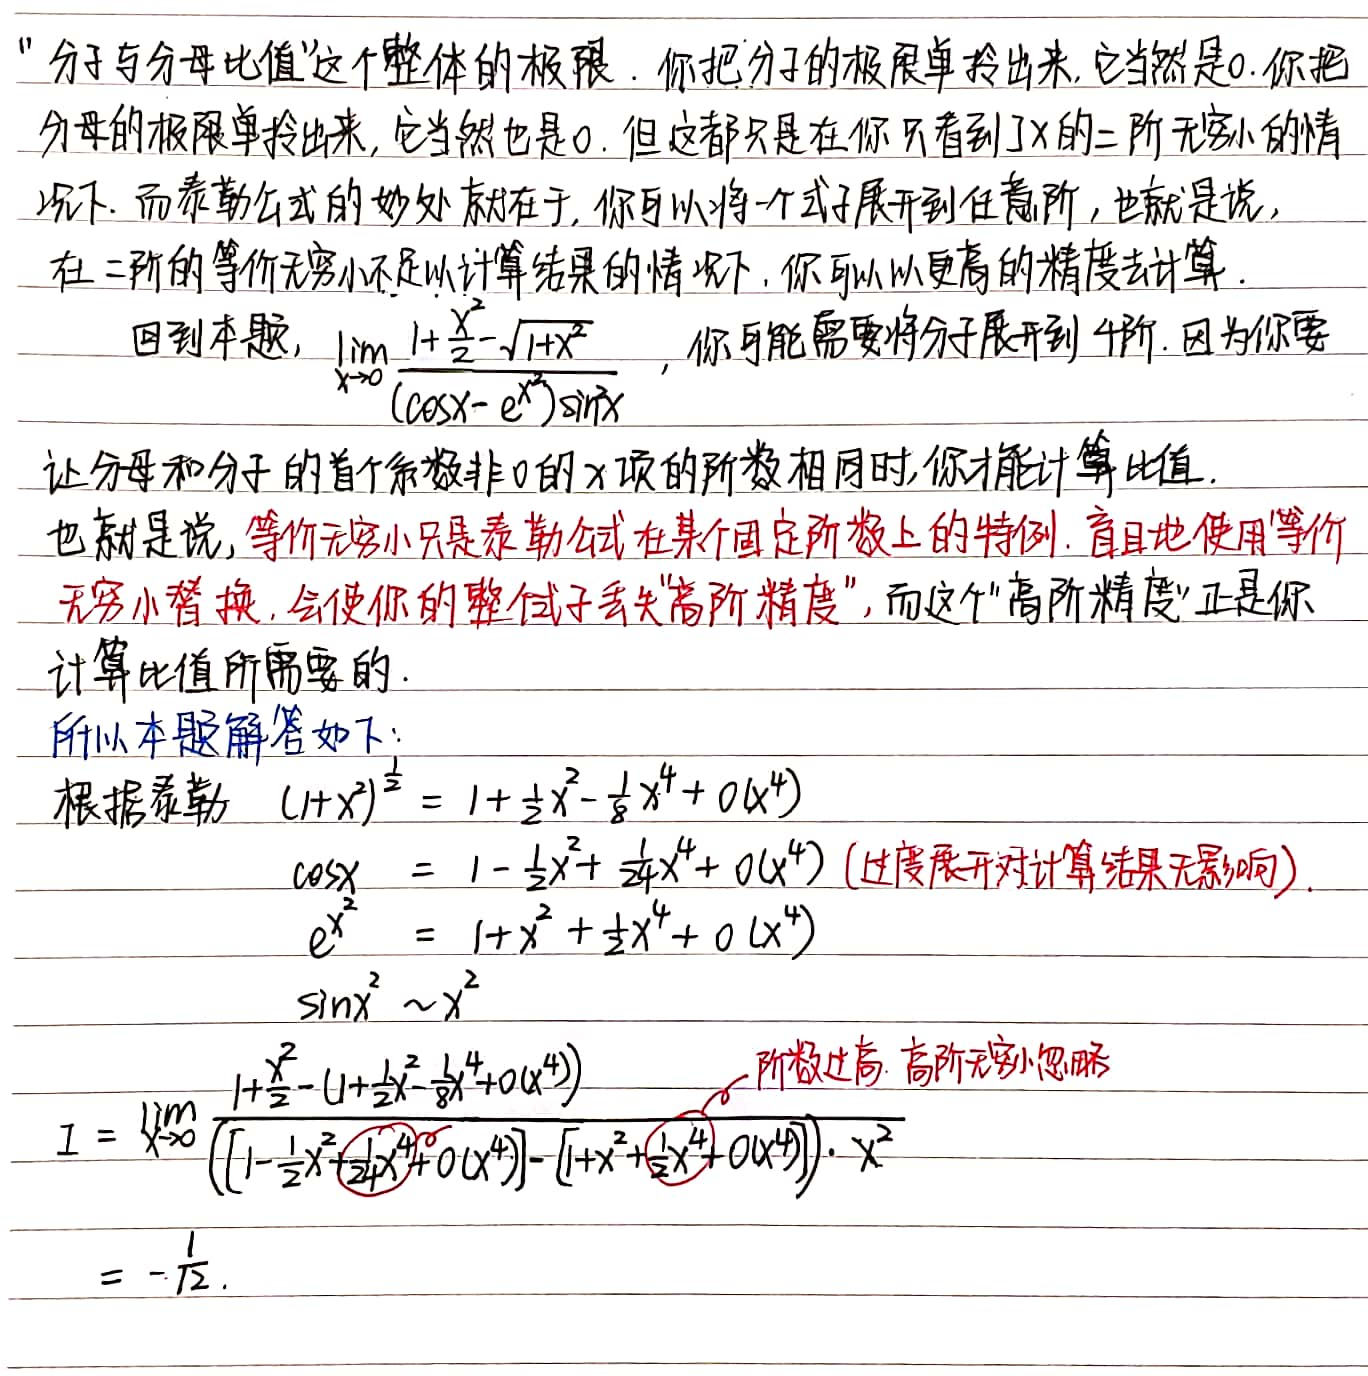 "分子与分母比值"这个整体的极限. 你把分子的极限单拎出来,它当然是0.你把
分母的极限单拎出来,它当然也是0. 但这都只是在你只看到了x的二阶无穷小的情
况下. 而泰勒公式的妙处就在于,你可以将一个式子展开到任意阶,也就是说,
在二阶的等价无穷小不足以计算结果的情况下,你可以以更高的精度去计算.
回到本题, lim_{x→0} (1+x²/2-√(1+x²))/((cosx-e^{x²})sin²x) ,你可能需要将分子展开到4阶.因为你要
让分母和分子的首个系数非0的x项的阶数相同时,你才能计算比值.
也就是说,等价无穷小只是泰勒公式在某个固定阶数上的特例.盲目地使用等价
无穷小替换,会使你的整个式子丢失"高阶精度",而这个"高阶精度"正是你
计算比值所需要的.
所以本题解答如下:
根据泰勒 (1+x²)^{1/2} = 1+1/2x²-1/8x⁴+o(x⁴)
cosx = 1-1/2x²+1/24x⁴+o(x⁴) (过度展开对计算结果无影响).
e^{x²} = 1+x²+1/2x⁴+o(x⁴)
sinx² ~ x²
阶数过高.高阶无穷小忽略
I = lim_{x→0} (1+x²/2-(1+1/2x²-1/8x⁴+o(x⁴)))/(([1-1/2x²+1/24x⁴+o(x⁴)]-[1+x²+1/2x⁴+o(x⁴)])·x²)
= -1/12.